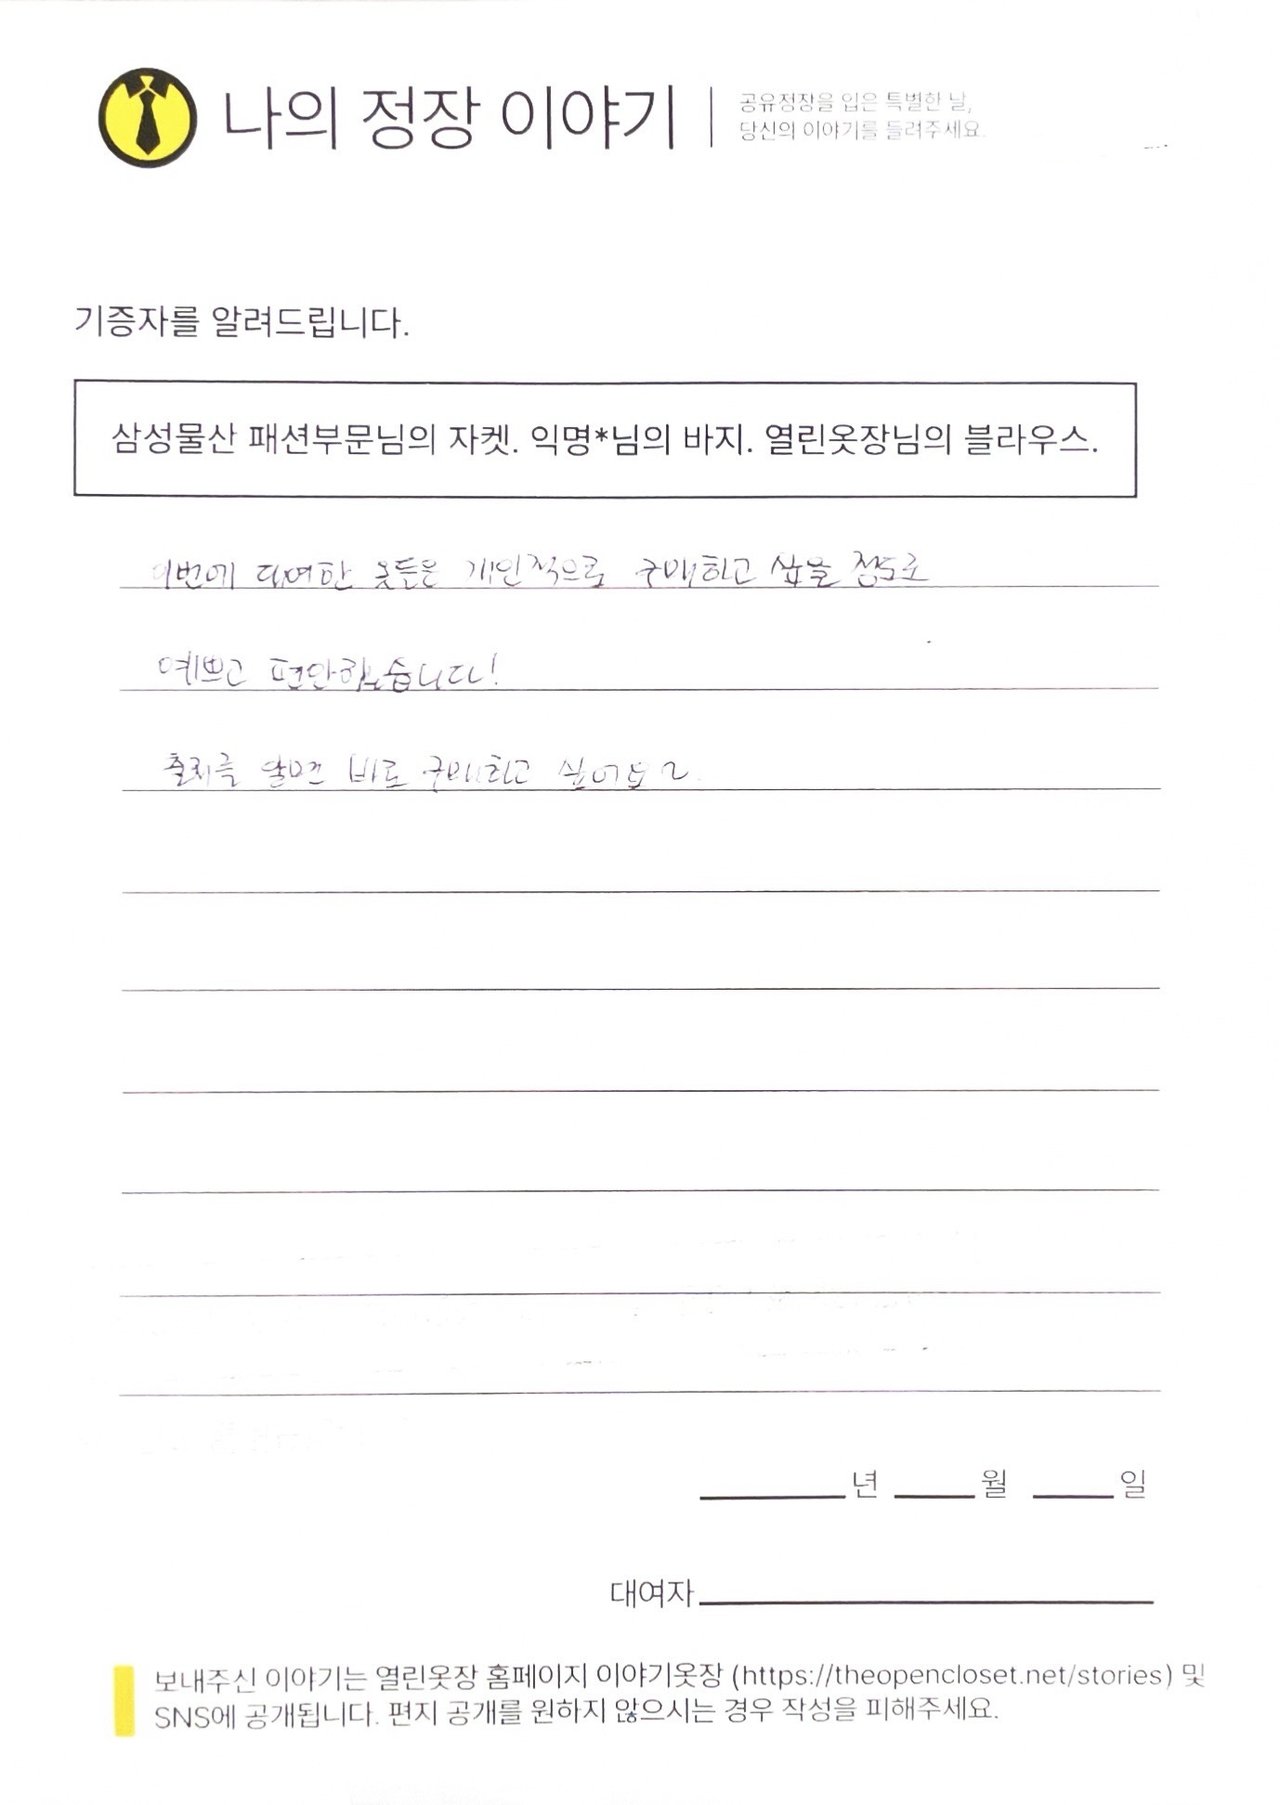 나의 정장 이야기
공유정장을 입은 특별한 날,
당신의 이야기를 들려주세요.
기증자를 알려드립니다.
삼성물산 패션부문님의 자켓. 익명*님의 바지. 열린옷장님의 블라우스.
이번에 대여한 옷들은 개인적으로 구매하고 싶을 정도로
예쁘고 편안했습니다!
출처를 알면 바로 구매하고 싶어요~
년 월 일
대여자
보내주신 이야기는 열린옷장 홈페이지 이야기옷장 (https://theopencloset.net/stories) 및
SNS에 공개됩니다. 편지 공개를 원하지 않으시는 경우 작성을 피해주세요.